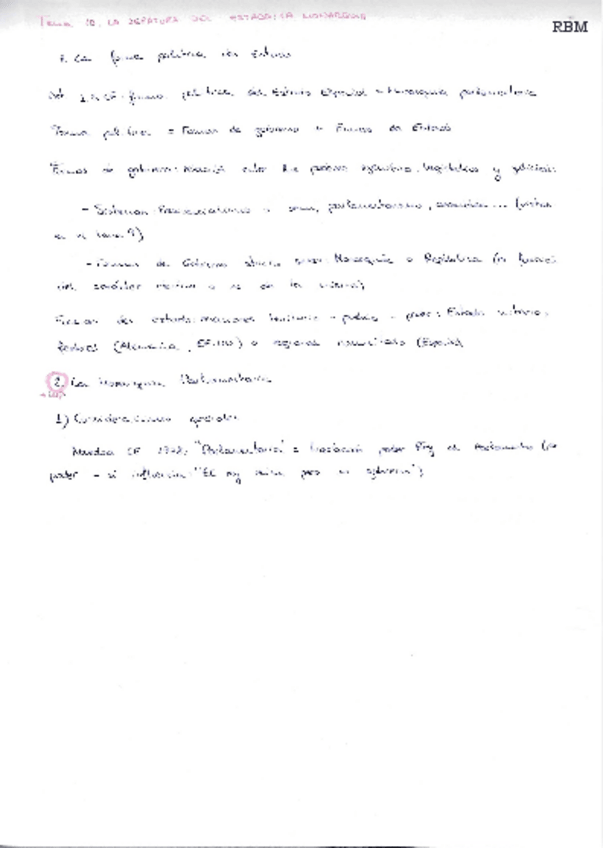 Tema 10. LA JEFATURA DEL ESTADO: LA MONARQUÍA
RBM
1. La forma política del Estado
Art 1.3 CE: forma política del Estado Español = Monarquía parlamentaria
Forma política = Formas de gobierno + Formas de Estado
Formas de gobierno: relación entre los poderes ejecutivo, legislativo y judicial:
- Sistemas Presidencialismo, parlamentarismo, (vistos
en el tema 9)
- Formas de Gobierno Monarquía o República (en función
del carácter electivo o no de la
Formas de estado: relaciones territorio - pueblo - poder: Estado unitario,
federal (Alemania, EEUU) o regional (España)
2. La Monarquía Parlamentaria
1) Consideraciones generales
CE 1978: "Parlamentaria" = poder Rey al Parlamento (no
poder - sí influencia: "El rey reina pero no gobierna")